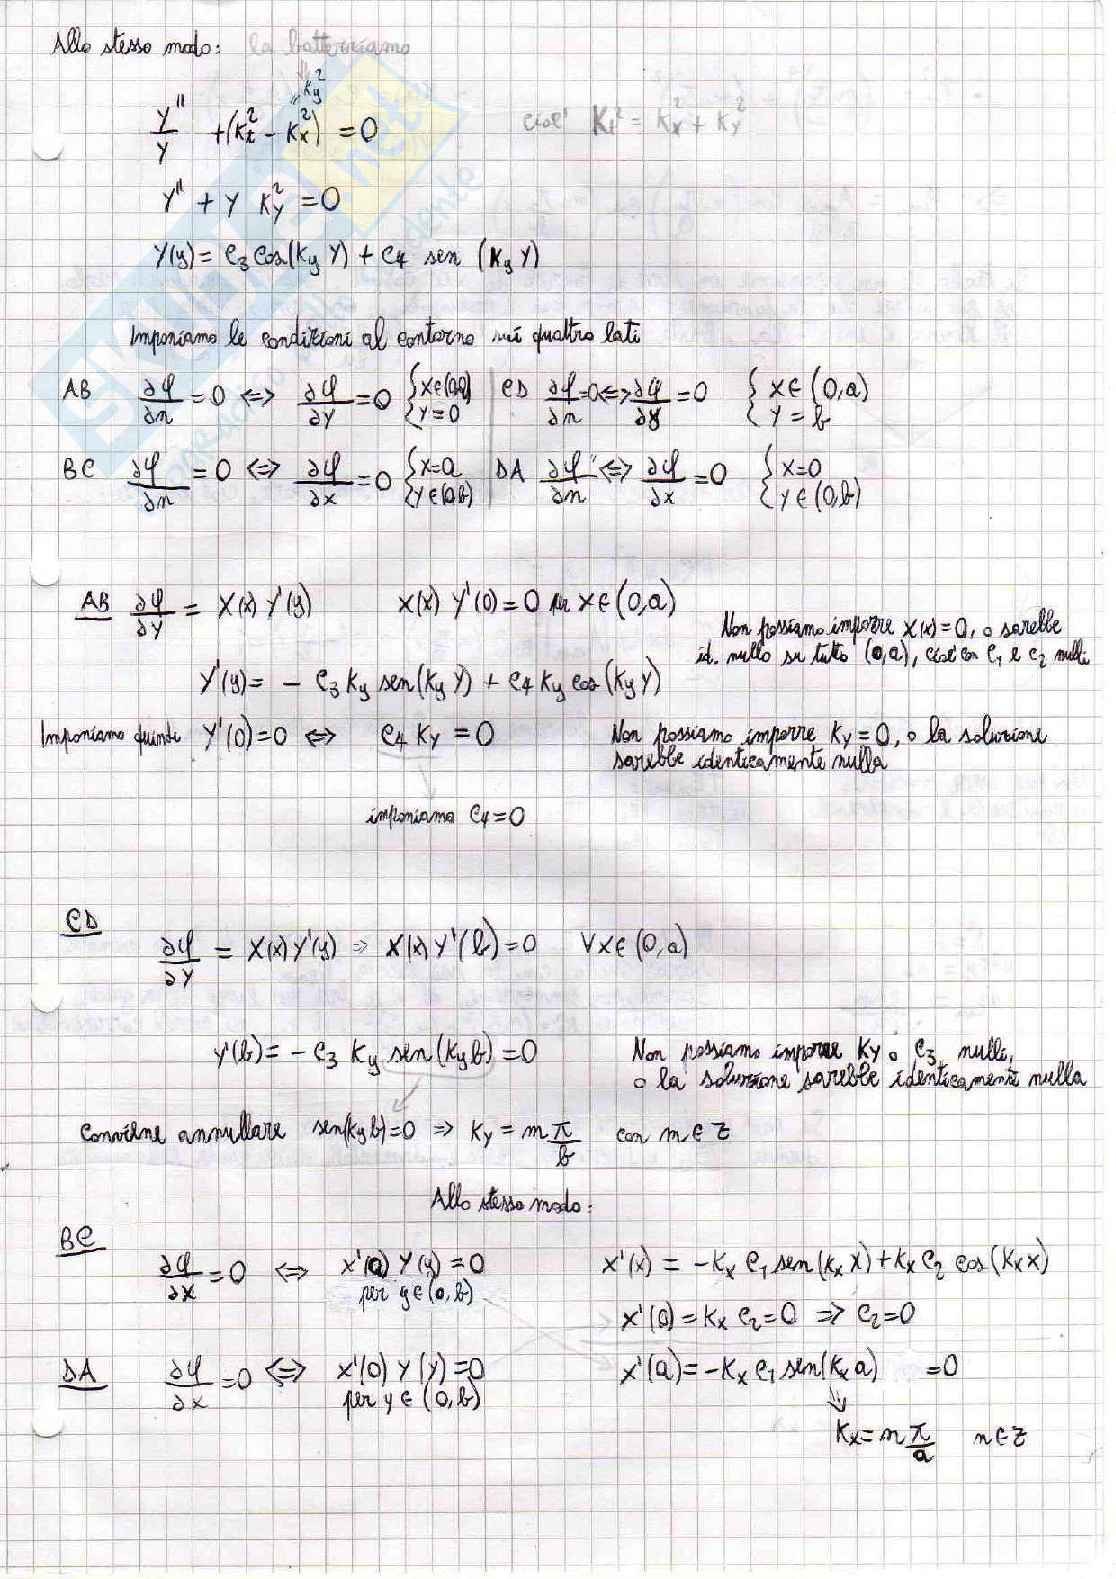 Allo stesso modo: la battezziamo
= Ky²
Y''/Y + (Kt² - Kx²) = 0 cioè Kt² = Kx² + Ky²
Y'' + Y Ky² = 0
Y(y) = C3 cos(Ky Y) + C4 sen (Ky Y)
Imponiamo le condizioni al contorno sui quattro lati
AB ∂φ/∂n = 0 <=> ∂φ/∂y = 0 { x∈(0,a) { y=0 | CD ∂φ/∂n = 0 <=> ∂φ/∂y = 0 { x∈(0,a) { y=b
BC ∂φ/∂n = 0 <=> ∂φ/∂x = 0 { x=a { y∈(0,b) | DA ∂φ/∂n <=> ∂φ/∂x = 0 { x=0 { y∈(0,b)
AB ∂φ/∂y = X(x) Y'(y) X(x) Y'(0) = 0 per x∈(0,a)
Non possiamo imporre X(x)=0, o sarebbe
id. nullo su tutto (0,a), cioè con C1 e C2 nulli
Y'(y) = - C3 Ky sen(Ky Y) + C4 Ky cos(Ky Y)
Imponiamo quindi Y'(0)=0 <=> C4 Ky = 0 Non possiamo imporre Ky=0, o la soluzione
sarebbe identicamente nulla
imponiamo C4=0
CD
∂φ/∂y = X(x) Y'(y) => X(x) Y'(b) = 0 ∀x∈(0,a)
Y'(b) = - C3 Ky sen(Ky b) = 0 Non possiamo imporre Ky o C3 nulli,
o la soluzione sarebbe identicamente nulla
Conviene annullare sen(Ky b)=0 => Ky = m π/b con m∈Z
Allo stesso modo:
BC
∂φ/∂x = 0 <=> X'(a) Y(y) = 0 X'(x) = -Kx C1 sen(Kx X) + Kx C2 cos(Kx X)
per y∈(0,b)
X'(0) = Kx C2 = 0 => C2=0
DA ∂φ/∂x = 0 <=> X'(0) Y(y) = 0 X'(a) = -Kx C1 sen(Kx a) = 0
per y∈(0,b)
Kx = n π/a n∈Z